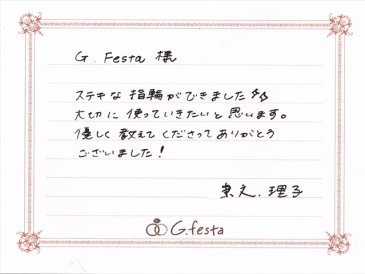 G. Festa 様
ステキな指輪ができました♪♪
大切に使っていきたいと思います。
優しく教えてくださってありがとう
ございました!
東之.理子
G.festa